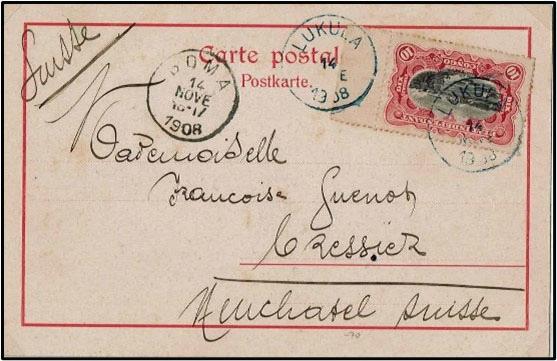 Suisse
Carte postal
Postkarte.
BOMA
14
NOVE
16-17
1908
LUKULA
14
E
1908
10
CONGO
10
DIX
DIX
LUKULA
14
1908
Mademoiselle
Françoise Guenot
Cressier
Neuchatel Suisse